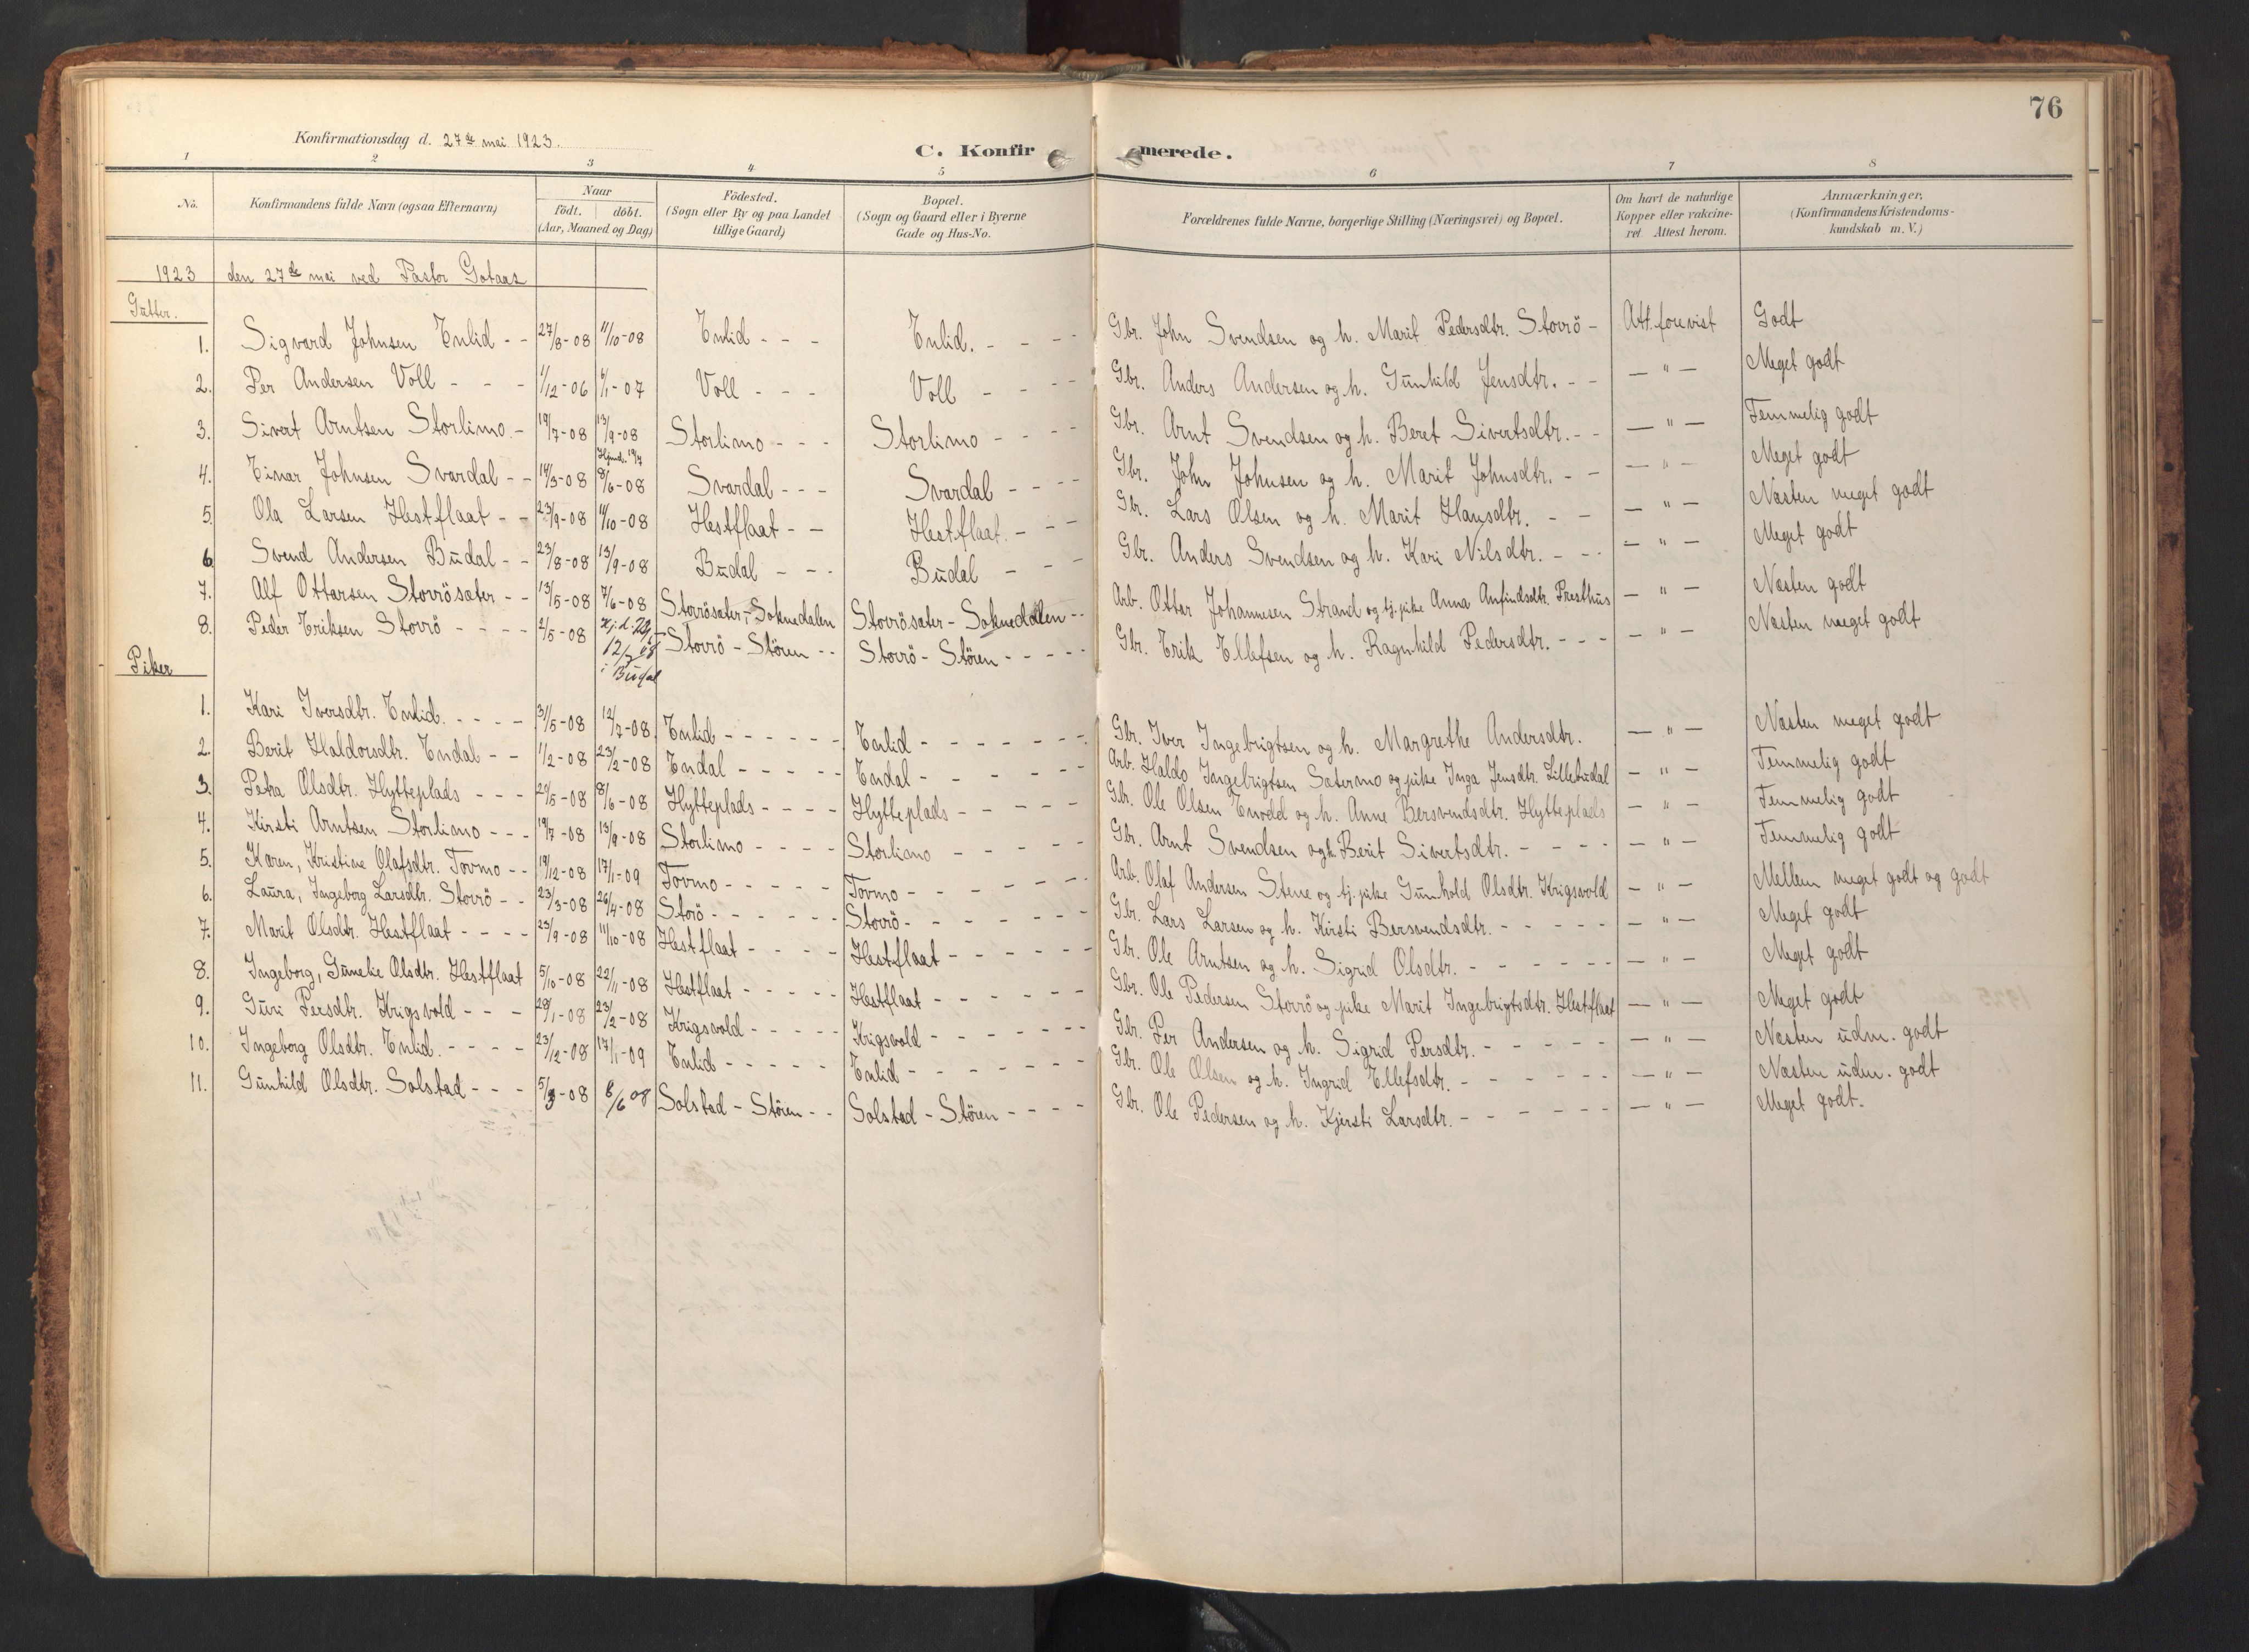 76
Konfirmationsdag d. 27de mai 1923.
C. Konfirmerede.
1 2 3 4 5 6 7 8
No. Konfirmandens fulde Navn (ogsaa Efternavn) Naar födt. döbt. (Aar, Maaned og Dag) Födested. (Sogn eller By og paa Landet tillige Gaard) Bopæl. (Sogn og Gaard eller i Byerne Gade og Hus-No. Forældrenes fulde Navne, borgerlige Stilling (Næringsvei) og Bopæl. Om havt de naturlige Kopper eller vakcineret. Attest herom. Anmærkninger. (Konfirmandens Kristendomskundskab m. V.)
1923 den 27de mai ved Pastor Gotaas
Gutter.
1. Sigvard Johnsen Enlid - - 27/8-08 11/10-08 Enlid - - - Enlid. - - - Gbr. John Svendsen og h. Marit Pedersdtr. Storrö - Att. forevist Godt
2. Per Andersen Voll - - - 1/12-06 6/1-07 Voll - - - Voll - - - Gbr. Anders Andersen og h. Gunhild Jensdtr. - - — " — Meget godt
3. Sivert Arntsen Storlimo - 19/7-08 13/9-08 Storlimo - - - Storlimo - - - - Gbr. Arnt Svendsen og h. Beret Sivertsdtr. - - — " — Temmelig godt
4. Einar Johnsen Svardal - - 14/3-08 Hjemd. 19/4 8/6-08 Svardal - - - Svardal - - - - Gbr. John Johnsen og h. Marit Johnsdtr. - - — " — Meget godt
5. Ola Larsen Hestflaat - - 23/9-08 11/10-08 Hestflaat - - Hestflaat. - - - Gbr. Lars Olsen og h. Marit Hansdtr. - - — " — Næsten meget godt
6 Svend Andersen Budal - - 23/8-08 13/9-08 Budal - - - Budal - - - Gbr. Anders Svendsen og h. Kari Nilsdtr. - - - — " — Meget godt
7. Alf Ottarsen Storrösæter - - 13/5-08 7/6-08 Storrösæter, - Soknedalen Storrösæter - Soknedalen - - Arb. Ottar Johannesen Strand og tj.pike Anna Anfindsdtr. Presthus — " — Næsten godt
8. Peder Eriksen Storrö - - - - 2/5-08 Hj. d. 12/7 08 i Budal Storrö - Stören - - Storrö - Stören - - - - - Gbr. Erik Ellefsen og h. Ragnhild Pedersdtr. - - - — " — Næsten meget godt
Piker
1. Kari Iversdtr. Enlid. - - - - 31/5-08 12/7-08 Enlid - - - - - - Enlid - - - - - - Gbr. Iver Ingebrigtsen og h. Margrethe Andersdtr. — " — Næsten meget godt
2. Berit Haldorsdtr. Endal - - 1/2-08 23/2-08 Endal - - - - - Endal - - - - - - Arb. Haldo Ingebrigtsen Sætermo og pike Inga Jensdtr. Lillebudal — " — Temmelig godt
3. Petra Olsdtr. Hytteplads - - - 24/5-08 8/6-08 Hytteplads - - - - Hytteplads - - - - - Gbr. Ole Olsen Enodd og h. Anne Bersvendsdtr. Hytteplads — " — Temmelig godt
4. Kirsti Arntsen Storlimo - - - 19/7-08 13/9-08 Storlimo - - - - Storlimo - - - - - Gbr. Arnt Svendsen og h. Berit Sivertsdtr. - - - - — " — Temmelig godt
5. Karen, Kristine Olafsdtr. Tovmo - - 19/12-08 17/1-09 Tovmo - - - - - Tovmo - - - - - - Arb. Olaf Andersen Stene og tj.pike Gunhold Olsdtr. Krigsvold — " — Mellem meget godt og godt
6. Laura, Ingeborg Larsdtr. Storrö - - 23/3-08 26/4-08 Storö - - - - - - Storrö - - - - - - Gbr. Lars Larsen og h. Kirsti Bersvendsdtr. - - - - - — " — Meget godt
7. Marit Olsdtr. Hestflaat - - - - 23/9-08 11/10-08 Hestflaat - - - - Hestflaat - - - - - Gbr. Ole Arntsen og h. Sigrid Olsdtr. - - - - - - — " — Meget godt
8. Ingeborg, Gunelie Olsdtr. Hestflaat 5/10-08 22/11-08 Hestflaat - - - - - Hestflaat - - - - - - Gbr. Ole Pedersen Storrö og pike Marit Ingebrigtsdtr. Hestflaat — " — Meget godt
9. Guri Persdtr. Krigsvold - - - 29/1-08 23/2-08 Krigsvold - - - - - Krigsvold - - - - - - Gbr. Per Andersen og h. Sigrid Persdtr. - - - - - — " — Næsten udm. godt
10. Ingeborg Olsdtr. Enlid. - - - - 23/12-08 17/1-09 Enlid - - - - - Enlid - - - - - - Gbr. Ole Olsen og h. Ingrid Ellefsdtr. - - - - - - — " — Næsten udm. godt
11. Gunhild Olsdtr. Solstad - - - 5/3-08 8/6 08 Solstad - Stören - - Solstad - Stören - - - - Gbr. Ole Pedersen og h. Kjersti Larsdtr. - - - - - - — " — Meget godt.